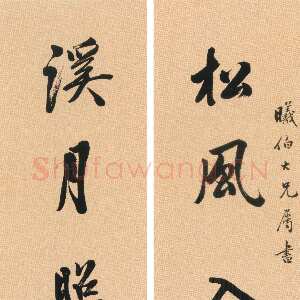 曦伯大兄屬書
松風入
溪月照
ShufawangCN